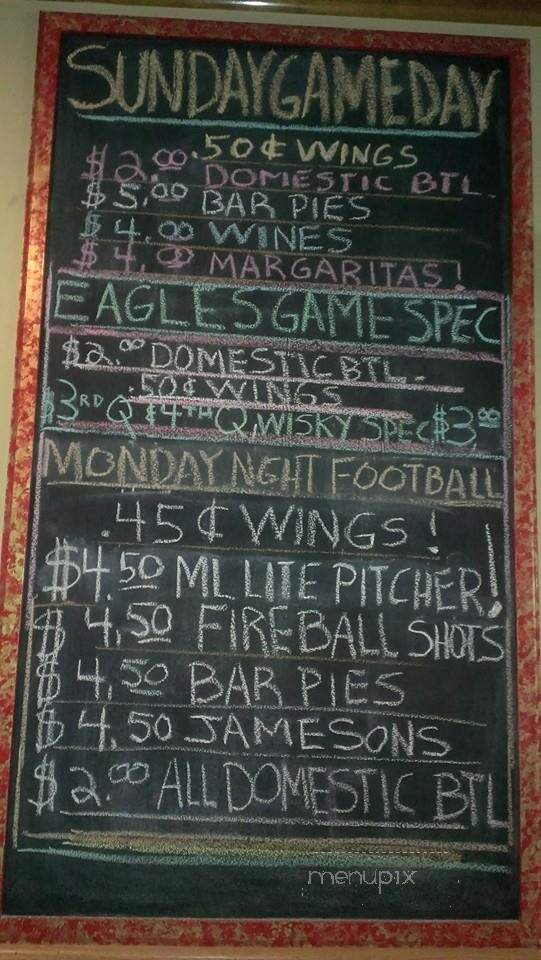 SUNDAY GAMEDAY
.50¢ WINGS
$2.00 DOMESTIC BTL.
$5.00 BAR PIES
$4.00 WINES
$4.00 MARGARITAS!
EAGLES GAME SPEC
$2.00 DOMESTIC BTL.
.50¢ WINGS
3RD Q & 4TH Q. WISKY SPEC $3.00
MONDAY NGHT FOOTBALL
.45¢ WINGS!
$4.50 ML LITE PITCHER!
$4.50 FIREBALL SHOTS
$4.50 BAR PIES
$4.50 JAMESONS
$2.00 ALL DOMESTIC BTL
menupix